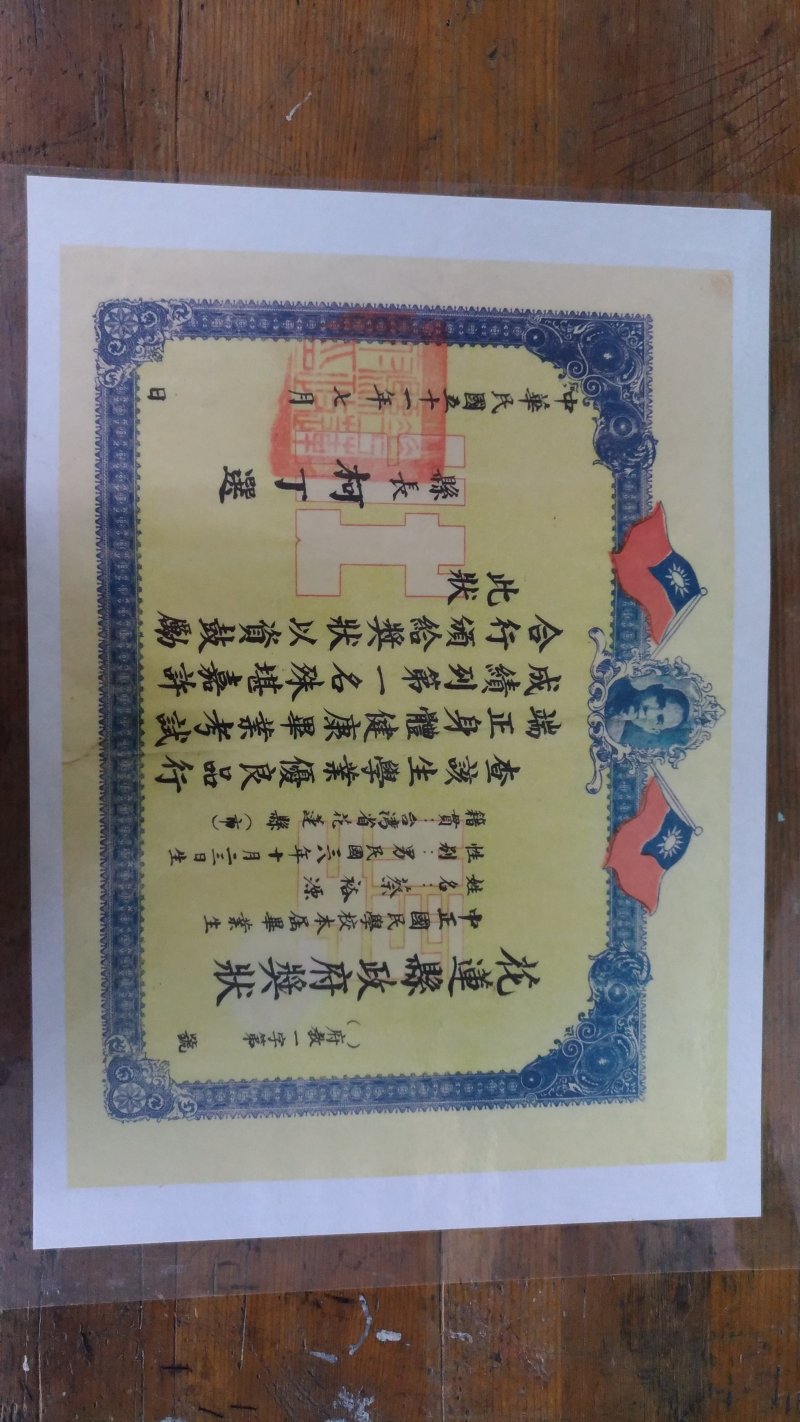 （ ）府教一字第　　號
花蓮縣政府獎狀
中正國民學校本屆畢業生
姓名：蔡裕源
性別：男民國三八年十月二三日生
籍貫：台灣省花蓮縣（市）
查該生學業優良品行
端正身體健康畢業考試
成績列第一名殊堪嘉許
合行頒給獎狀以資鼓勵
此狀
縣長柯丁選
中華民國五十一年七月　　日